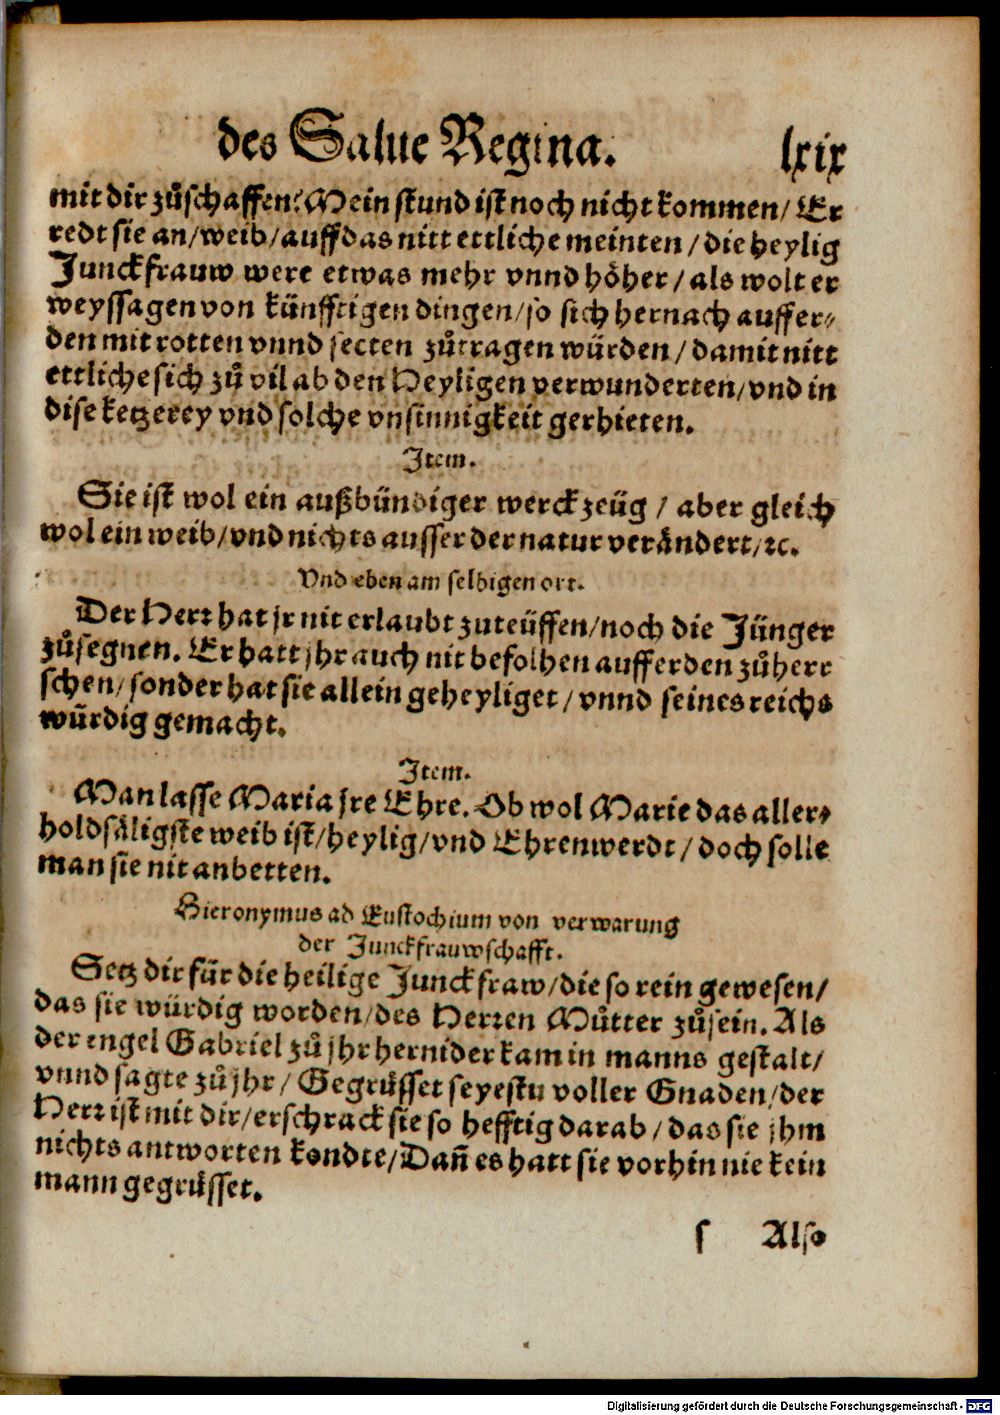 des Salue Regina. lxix
mit dir zůschaffen? Mein stund ist noch nicht kommen/ Er
redt sie an/ weib/ auff das nitt ettliche meinten/ die heylig
Junckfrauw were etwas mehr vnnd höher/ als wolt er
weyssagen von künfftigen dingen/ so sich hernach auffer⸗
den mit rotten vnnd secten zůtragen würden/ damit nitt
ettliche sich zů vil ab den Heyligen verwunderten/ vnd in
dise ketzerey vnd solche vnsinnigkeit gerhieten.
Item.
Sie ist wol ein außbündiger werckzeüg / aber gleich
wol ein weib/ vnd nichts ausser der natur verändert/ ꝛc.
Vnd eben am selbigen ort.
Der Herꝛ hat jr nit erlaubt zuteüffen/ noch die Jünger
zůsegnen. Er hatt jhr auch nit befolhen aufferden zůherr
schen/ sonder hat sie allein geheyliget/ vnnd seines reichs
würdig gemacht.
Item.
Man lasse Maria jre Ehre. Ob wol Marie das aller⸗
holdsäligste weib ist/ heylig/ vnd Ehrenwerdt/ doch solle
man sie nit anbetten.
Hieronymus ad Eustochium von verwarung
der Junckfrauwschafft.
Setz dir für die heilige Junckfraw/ die so rein gewesen/
das sie würdig worden/ des Herꝛen Můtter zůsein. Als
der engel Gabriel zů jhr hernider kam in manns gestalt/
vnnd sagte zů jhr/ Gegrüsset seyestu voller Gnaden/ der
Herꝛ ist mit dir/ erschrack sie so hefftig darab/ das sie jhm
nichts antworten kondte/ Dañ es hatt sie vorhin nie kein
mann gegrüsset.
s Also
Digitalisierung gefördert durch die Deutsche Forschungsgemeinschaft - DFG